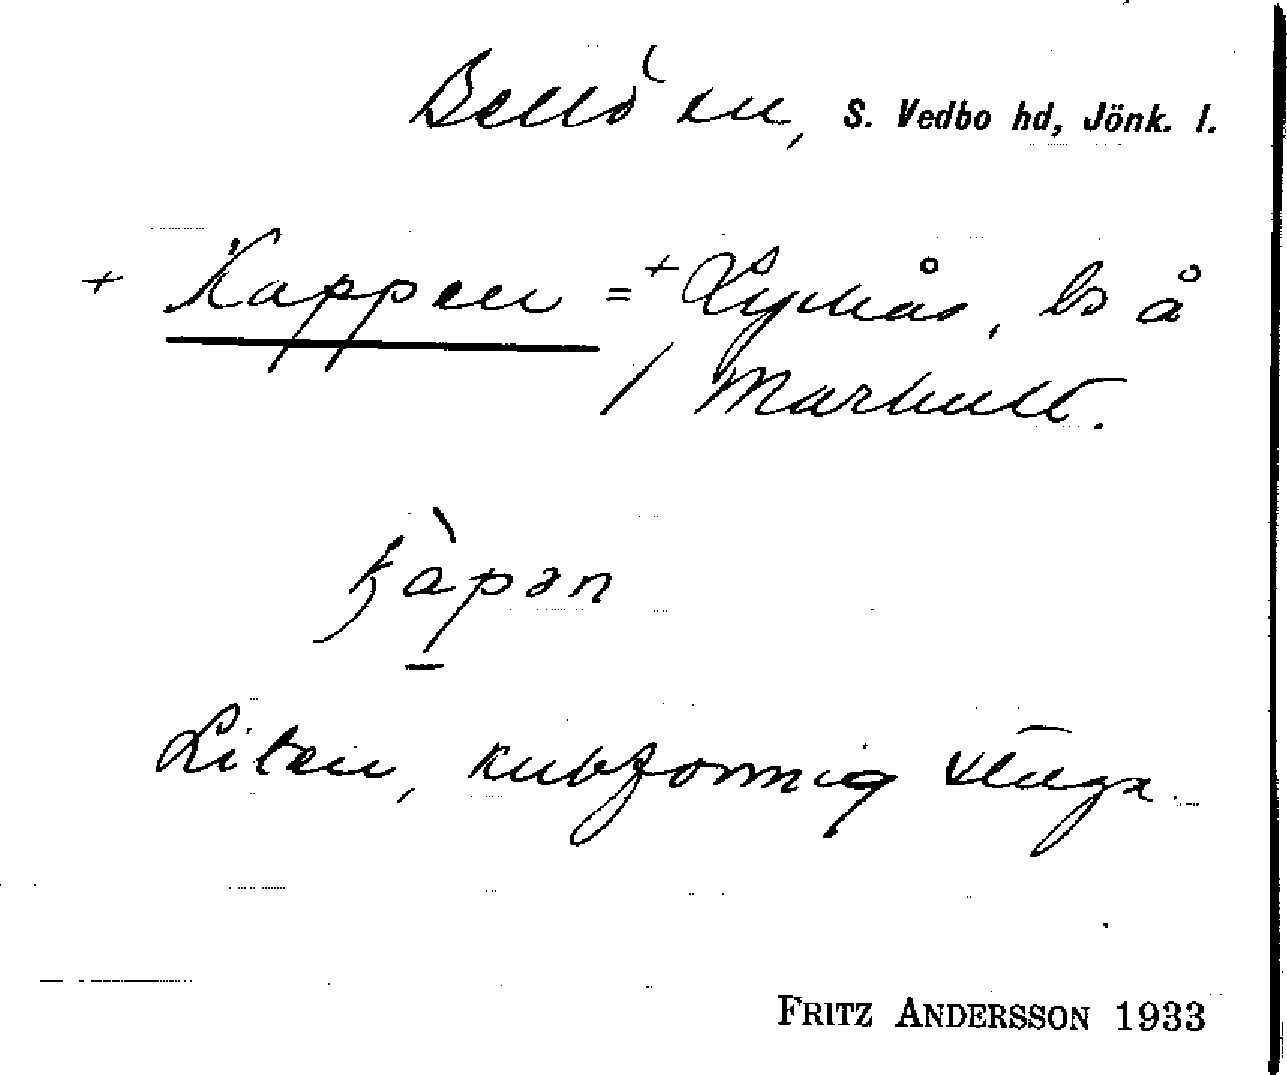 Bellö sn, S. Vedbo hd, Jönk. l.
+ Kappen = + Lyckås, ls å
/ Markult.
kàpən
Liten, kubformig stuga.
FRITZ ANDERSSON 1933